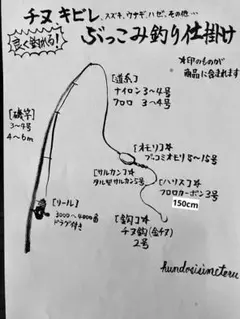 チヌ キビレ、スズキ、ウナギ、ハゼ、その他…
良く釣れる!
ぶっこみ釣り仕掛け
*印のものが
商品に含まれます
[道糸]
ナイロン 3〜4号
フロロ 3〜4号
[磯竿]
3〜4号
4〜5m
[オモリ]*
ブッコミオモリ 8〜15号
[サルカン]*
タル型サルカン5号
[ハリス]*
フロロカーボン3号
150cm
[リール]
3000〜4000番
ドラグ付き
[鈎]*
チヌ鈎(金チヌ)
2号